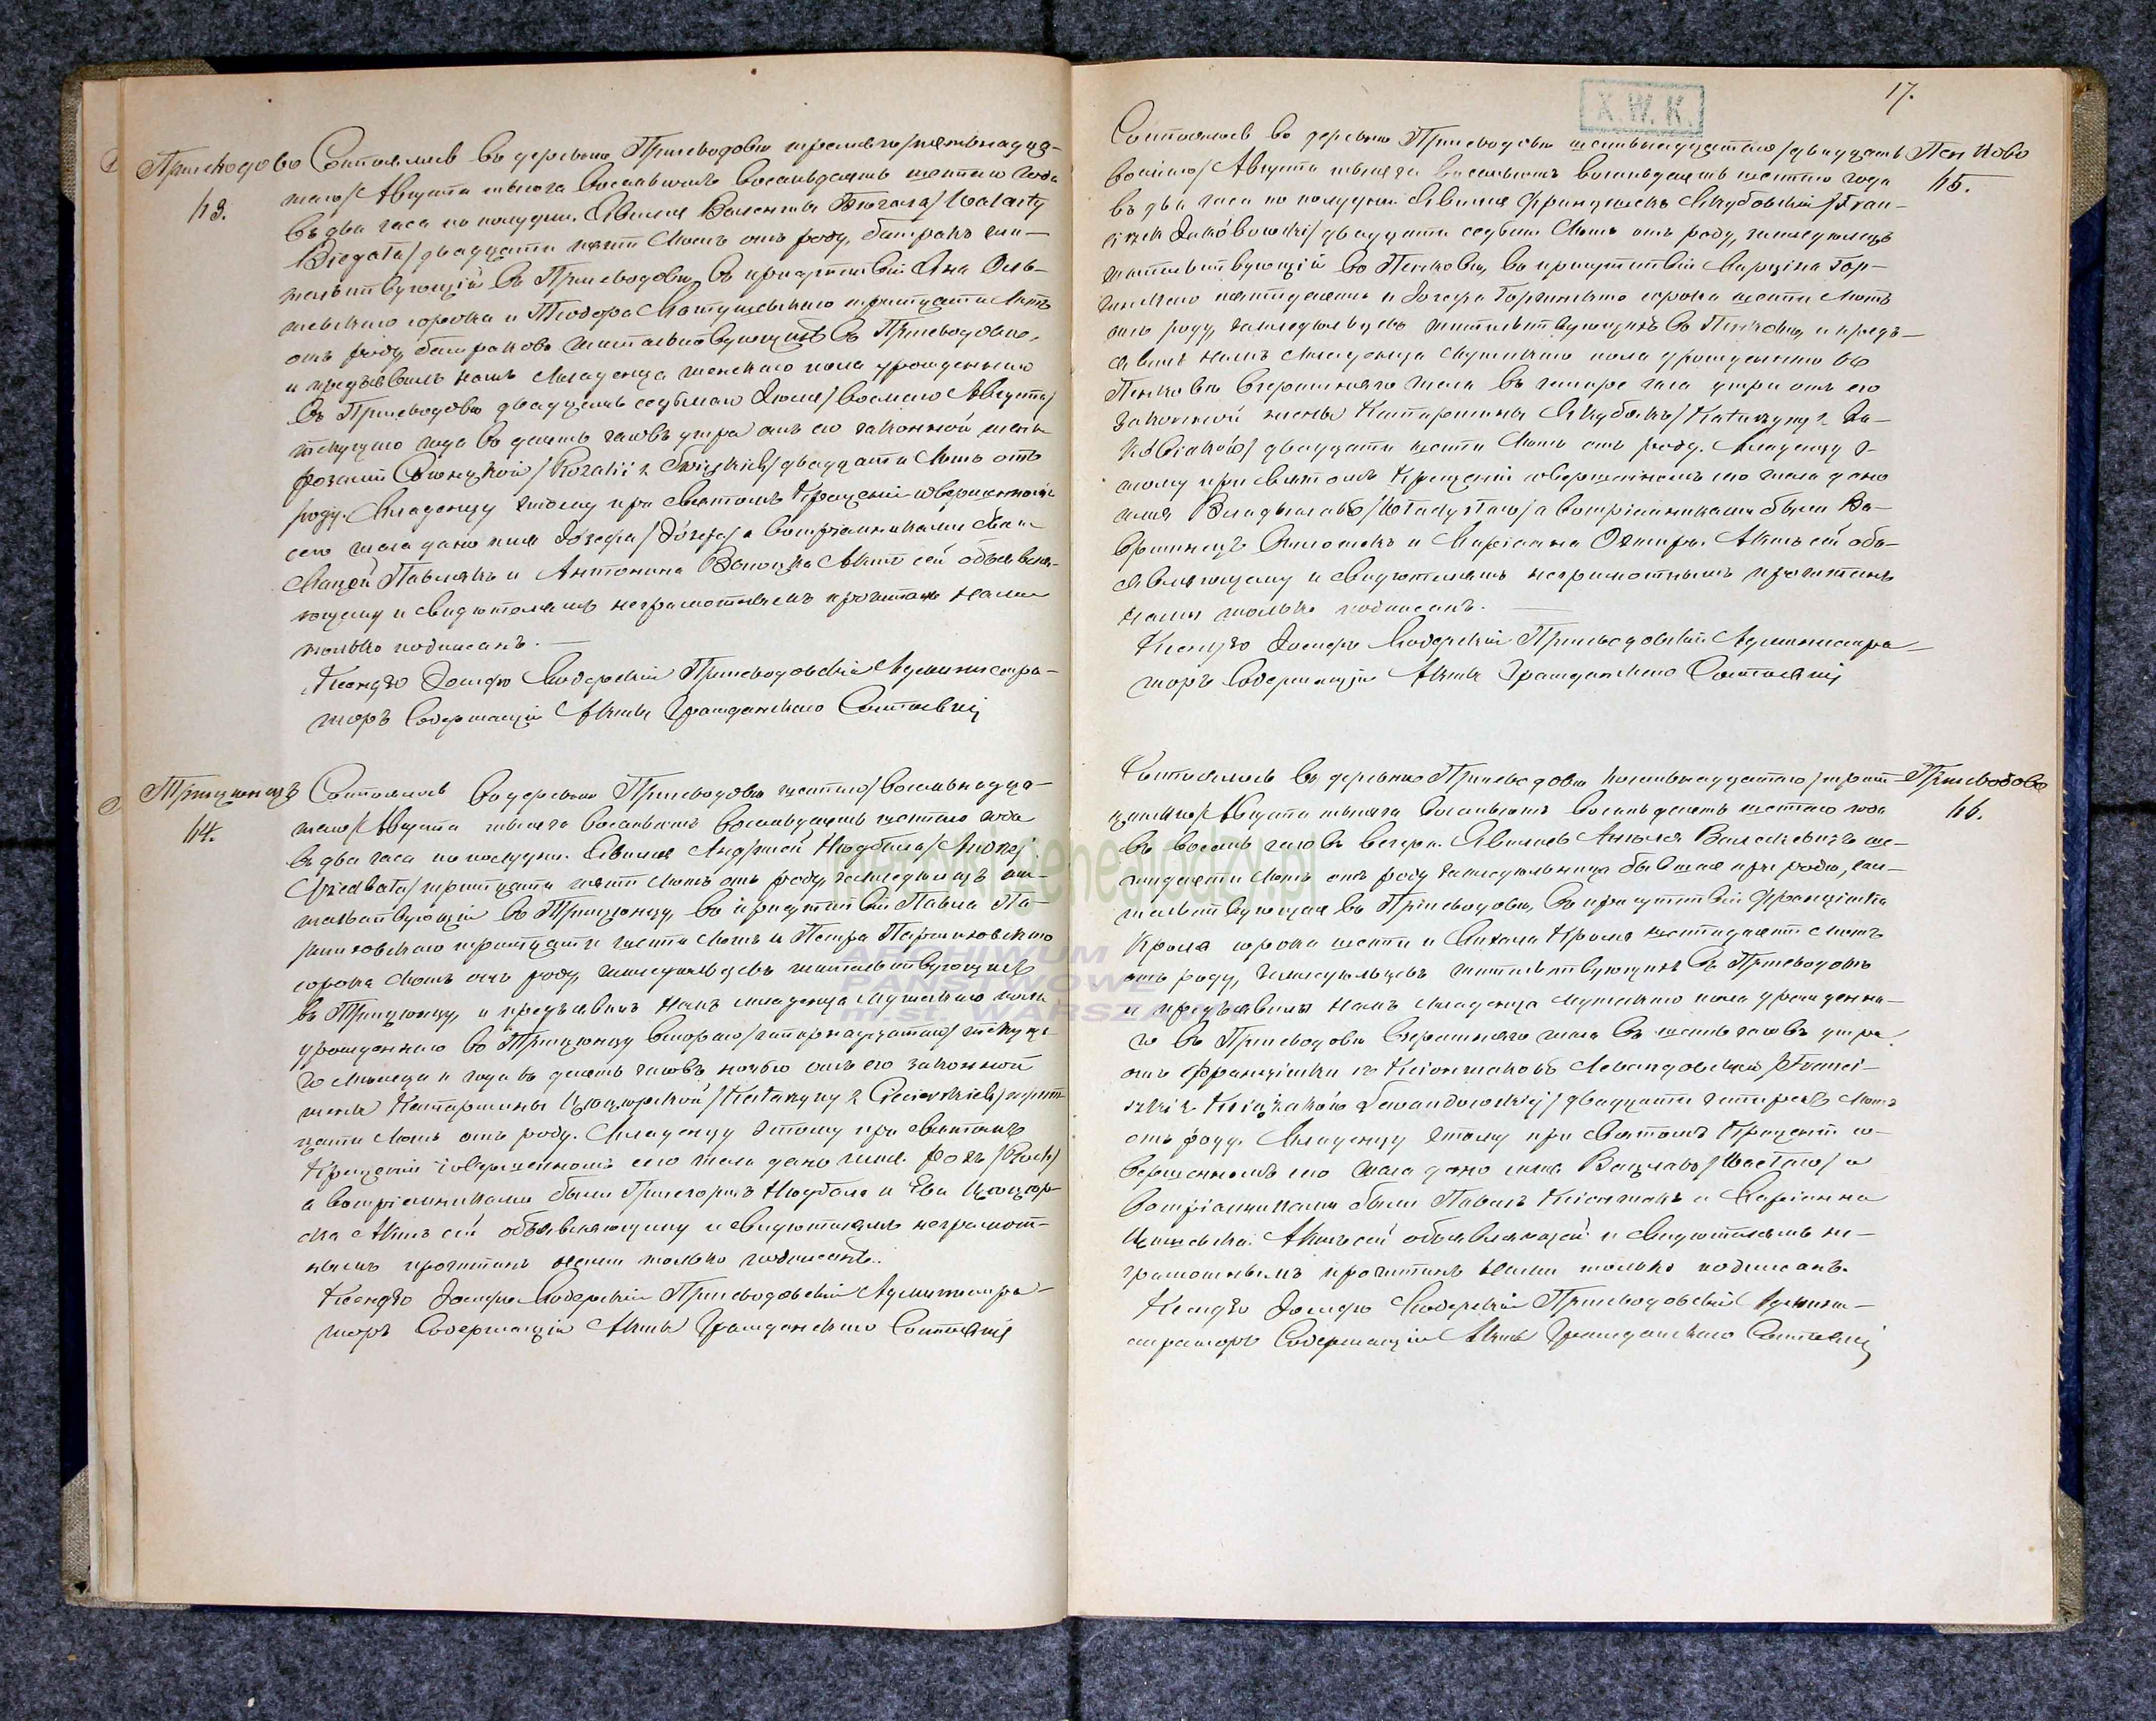 Пршеводово
63.
Состоялось въ деревнѣ Пршеводовѣ третьяго /пятьнадца-
таго/ Августа тысяча восемьсотъ восемьдесятъ шестаго года
въ два часа по полудни. Явился Валентій Бѣгала /Walenty
Biegała/ двадцати пяти лѣтъ отъ роду, батракъ жи-
тельствующій въ Пршеводовѣ, въ присутствіи Яна Оль-
шевскаго сорока и Теодора Матушевскаго тридцати лѣтъ
отъ роду, батраковъ жительствующихъ въ Пршеводовѣ,
и предъявилъ намъ младенца женскаго пола урожденнаго
въ Пршеводовѣ двадцать седьмаго Іюля /восьмаго Августа/
текущаго года въ десять часовъ утра отъ его законной жены
Розаліи /Rozalii z / двадцати лѣтъ отъ
роду. Младенцу этому при Святомъ Крещеніи совершенномъ
сего числа дано имя Іозефа /Józefa/ а воспріемниками были
Мацей Павлякъ и Антонина Актъ сей объявля-
ющему и свидѣтелямъ неграмотнымъ прочитанъ нами
только подписанъ.
Ксендзъ Іосифъ Пршеводовскій Администра-
торъ Содержащій Акты Гражданскаго Состоянія
64.
Состоялось въ деревнѣ Пршеводовѣ шестаго /восемьнадца-
таго/ Августа тысяча восемьсотъ восемьдесятъ шестаго года
въ два часа по полудни. Явился Андржей Нѣдбала /Andrzej
Niedbała/ тридцати пяти лѣтъ отъ роду, земледѣлецъ жи-
тельствующій въ въ присутствіи Павла Па-
тридцати шести лѣтъ и Петра
сорока лѣтъ отъ роду, земледѣльцевъ жительствующихъ
въ и предъявилъ намъ младенца мужскаго пола
урожденнаго въ втораго /четырнадцатаго/ текуща-
го мѣсяца и года въ десять часовъ ночью отъ его законной
жены Катаржины /Katarzyny z / тридт-
цати лѣтъ отъ роду. Младенцу этому при Святомъ
Крещеніи совершенномъ сего числа дано имя Рохъ /Roch/
а воспріемниками были Гржегоржъ Нѣдбала и Ева
Актъ сей объявляющему и свидѣтелямъ неграмот-
нымъ прочитанъ нами только подписанъ.
Ксендзъ Іосифъ Пршеводовскій Администра-
торъ Содержащій Акты Гражданскаго Состоянія
17.
X.W.K.
65.
Состоялось въ деревнѣ Пршеводовѣ /двадцать
восьмаго/ Августа тысяча восемьсотъ восемьдесятъ шестаго года
въ два часа по полудни. Явился Францишекъ Якубовскій /Fran-
ciszek Jakóbowski/ двадцати седьми лѣтъ отъ роду, земледѣлецъ
жительствующій въ Пенковѣ, въ присутствіи Марцина Гор-
пятидесяти и Іозефа сорока шести лѣтъ
отъ роду, земледѣльцевъ жительствующихъ въ Пенковѣ, и предъ-
явилъ намъ младенца мужскаго пола урожденнаго въ
Пенковѣ вчерашняго числа въ четыре часа утра отъ его
законной жены Катаржины Якубякъ /Katarzyny z Ja-
kóbiaków/ двадцати шести лѣтъ отъ роду. Младенцу э-
тому при Святомъ Крещеніи совершенномъ сего числа дано
имя Владыславъ /Władysław/ а воспріемниками были Ва-
вржинецъ и Маріанна Актъ сей объ-
являющему и свидѣтелямъ неграмотнымъ прочитанъ
нами только подписанъ.
Ксендзъ Іосифъ Пршеводовскій Администра-
торъ Содержащій Акты Гражданскаго Состоянія
Пршеводово
66.
Состоялось въ деревнѣ Пршеводовѣ восемьнадцатаго /трит-
цатаго/ Августа тысяча восемьсотъ восемьдесятъ шестаго года
въ восемь часовъ вечера. Явилась Анеля ше-
стидесяти лѣтъ отъ роду земледѣльница бывшая при родѣ, жи-
тельствующая въ Пршеводовѣ, въ присутствіи Францишка
Кроля сорока шести и Михала Кроля шестидесяти лѣтъ
отъ роду, земледѣльцевъ жительствующихъ въ Пршеводовѣ
и предъявила намъ младенца мужскаго пола урожденна-
го въ Пршеводовѣ вчерашняго числа въ шесть часовъ утра
отъ Францишки изъ Ксіонжаковъ Левандовской /Franci-
szki z Książaków Lewandowskiej/ двадцати четырехъ лѣтъ
отъ роду. Младенцу этому при Святомъ Крещеніи со-
вершенномъ сего числа дано имя Вацлавъ /Wacław/ а
воспріемниками были Павелъ Ксіонжакъ и Маріанна
Актъ сей объявляющей и свидѣтелямъ не-
грамотнымъ прочитанъ нами только подписанъ.
Ксендзъ Іосифъ Пршеводовскій Админи-
страторъ Содержащій Акты Гражданскаго Состоянія
ARCHIWUM
PAŃSTWOWE
m.st. WARSZAWY